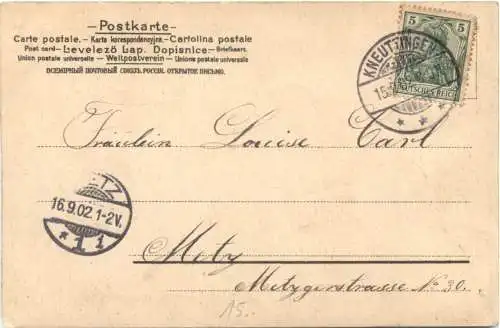 Postkarte
Carte postale. — Karta korespondencyjna. — Cartolina postale
Post card — Levelező Lap. Dopisnice — Briefkaart.
Union postale universelle — Weltpostverein — Unione postale universale
ВСЕМІРНЫЙ ПОЧТОВЫЙ СОЮЗЪ РОССІЯ. ОТКРЫТОЕ ПИСЬМО.
5 5
DEUTSCHES REICH
KNEUTTINGEN
15.
Fräulein Louise Carl
METZ
16.9.02.1-2V.
* 1 1
Metz
Metzgerstrasse No 30.
15.